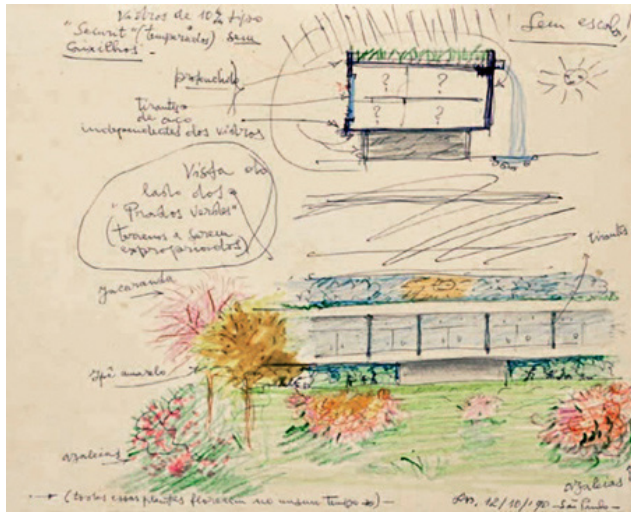 Vidros de 10% tipo
"Securit" (temperados) sem
Caixilhos -
! Sem escala!
tirantes
de aço
independentes dos vidros
? ?
? ?
Vista do
lado dos
"Prados verdes"
(terrenos a serem
expropriados)
tirantes
Jacaranda
Ipê amarelo
azaleias
azaleias
(todas essas plantas florecem no mesmo tempo) -
12/10/90 - São Paulo -